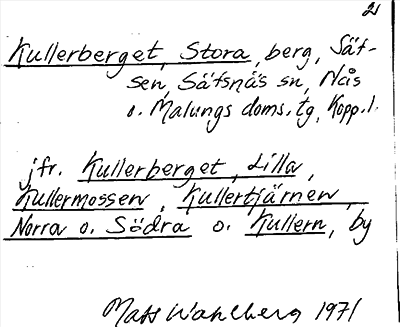 2
Kullerberget, Stora, berg, Säf-
sen, Säfsnäs sn, Nås
o. Malungs doms. tg, Kopp. l.
jfr. Kullerberget, Lilla,
Kullermossen, Kullertjärnen,
Norra o. Södra o. Kullern, by
Mats Wahlberg 1971